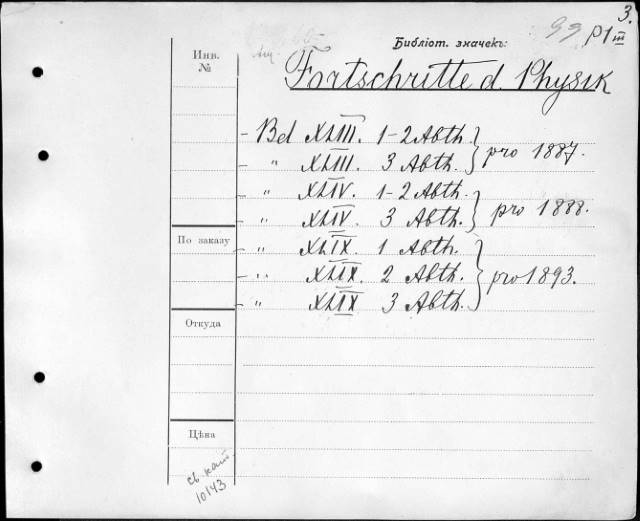 3.
Библіот. значекъ:
99 PI III
Инв.
№
Fortschritte d. Physik
- Bd XLIII. 1-2 Abth. } pro 1887.
" XLIII. 3 Abth.
" XLIV. 1-2 Abth. } pro 1888.
" XLIV. 3 Abth.
По заказу
- " XLIX. 1 Abth. } pro 1893.
- " XLIX. 2 Abth.
- " XLIX 3 Abth.
Откуда
Цѣна
св. кат.
10143